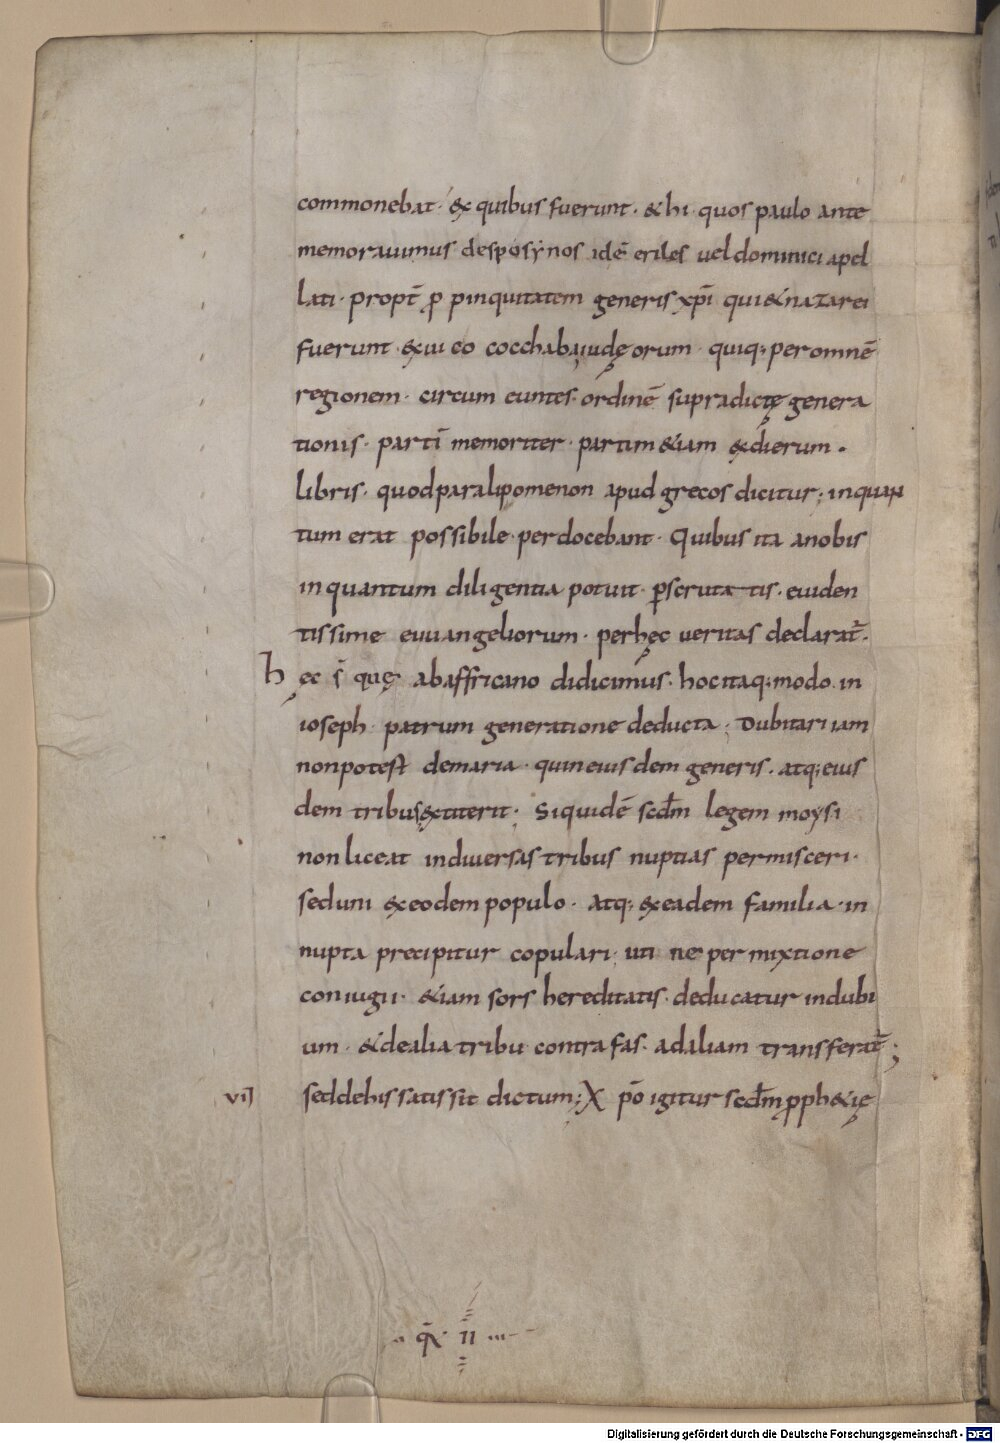 commonebat· ex quibus fuerunt· & hi· quos paulo ante
memorauimus desposẏnos idē eriles uel dominici apel
lati· propt̄ ꝓpinquitatem generis xp̄i qui & nazarei
fuerunt· ex uico cocchaba iudęorum· quiq; per omnē
regionem· circum euntes· ordinē supradictę genera
tionis· partī memoriter· partim &iam ex dierum·
libris· quod paralipomenon apud grecos dicitur; in quan
tum erat possibile· perdocebant· Quibus ita anobis
in quantum diligentia potuit· ꝑscrutatis· euiden
tissime euuangeliorum· per hęc ueritas declarat̄·
hęc s̄ quę ab affricano didicimus· hoc itaq; modo in
ioseph· patrum generatione deducta; Dubitari iam
non potest de maria· quin eius dem generis· atq; eius
dem tribus extiterit· Siquidē scd̄m legem moẏsi
non liceat in diuersas tribus nuptias permisceri·
sed uni ex eodem populo· atq; ex eadem familia· in
nupta precipitur copulari; uti ne permixtione
coniugii· &iam sors hereditatis· deducatur in dubi
um· & de alia tribu contra fas· ad aliam transferat̄;
vii sed de his satis sit dictum; X p̄o igitur scd̄m ꝓph&ię
q̄· II
Digitalisierung gefördert durch die Deutsche Forschungsgemeinschaft - DFG